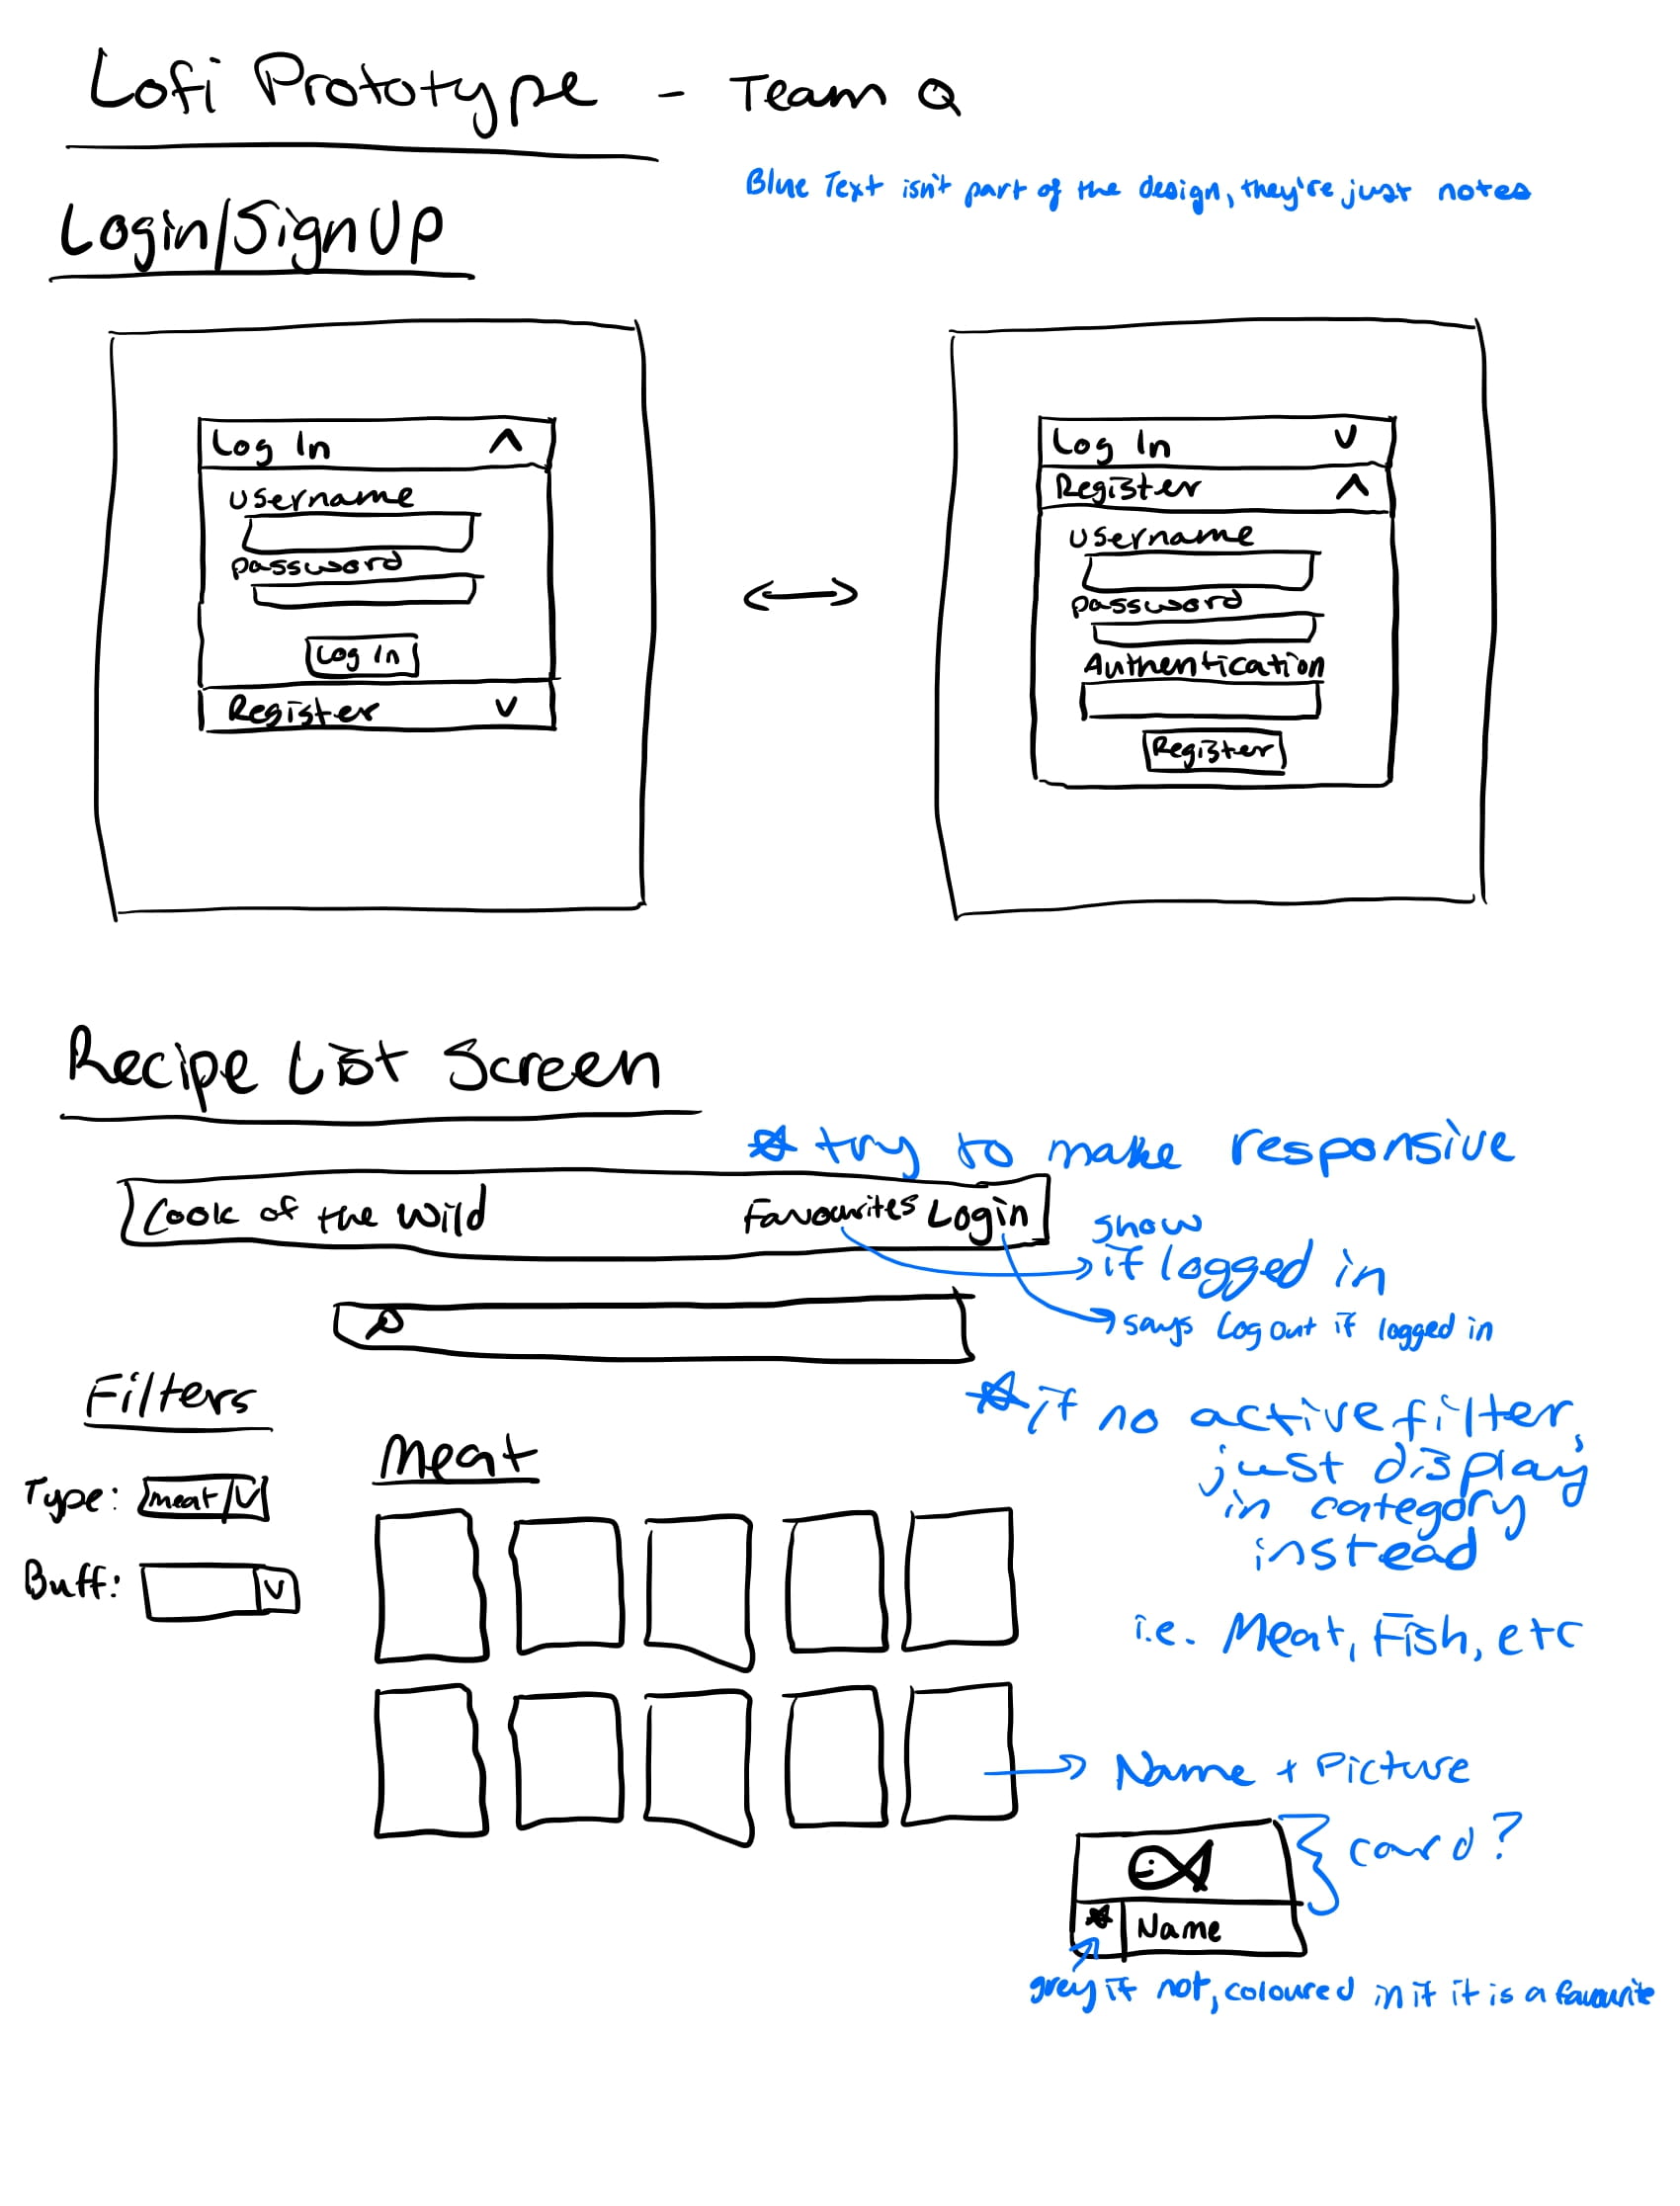 Lofi Prototype - Team Q
Blue Text isn't part of the design, they're just notes
Login/SignUp
Log In ^
username
password
Log In
Register v
<->
Log In v
Register ^
username
password
Authentication
Register
Recipe List Screen
* try to make responsive
Cook of the Wild
Favourites Login
show
if logged in
says Log out if logged in
Filters
Type: meat v
Buff: v
* if no active filter,
just display
in category
instead
i.e. Meat, Fish, etc
Meat
Name + Picture
card?
* Name
grey if not, coloured in if it is a favourite